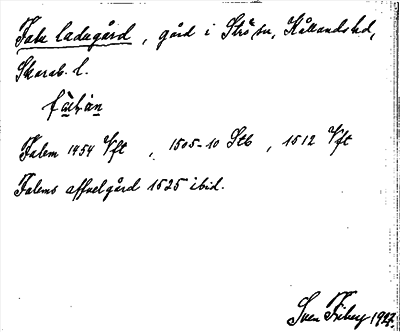 Fale ladugård, gård i Strö sn, Kållands hd,
Skarab. l.
Falem 1454 Vft, 1505-10 Stb, 1512 Vft
Falems affvelgård 1525 ibid.
Sven Friberg 1927.